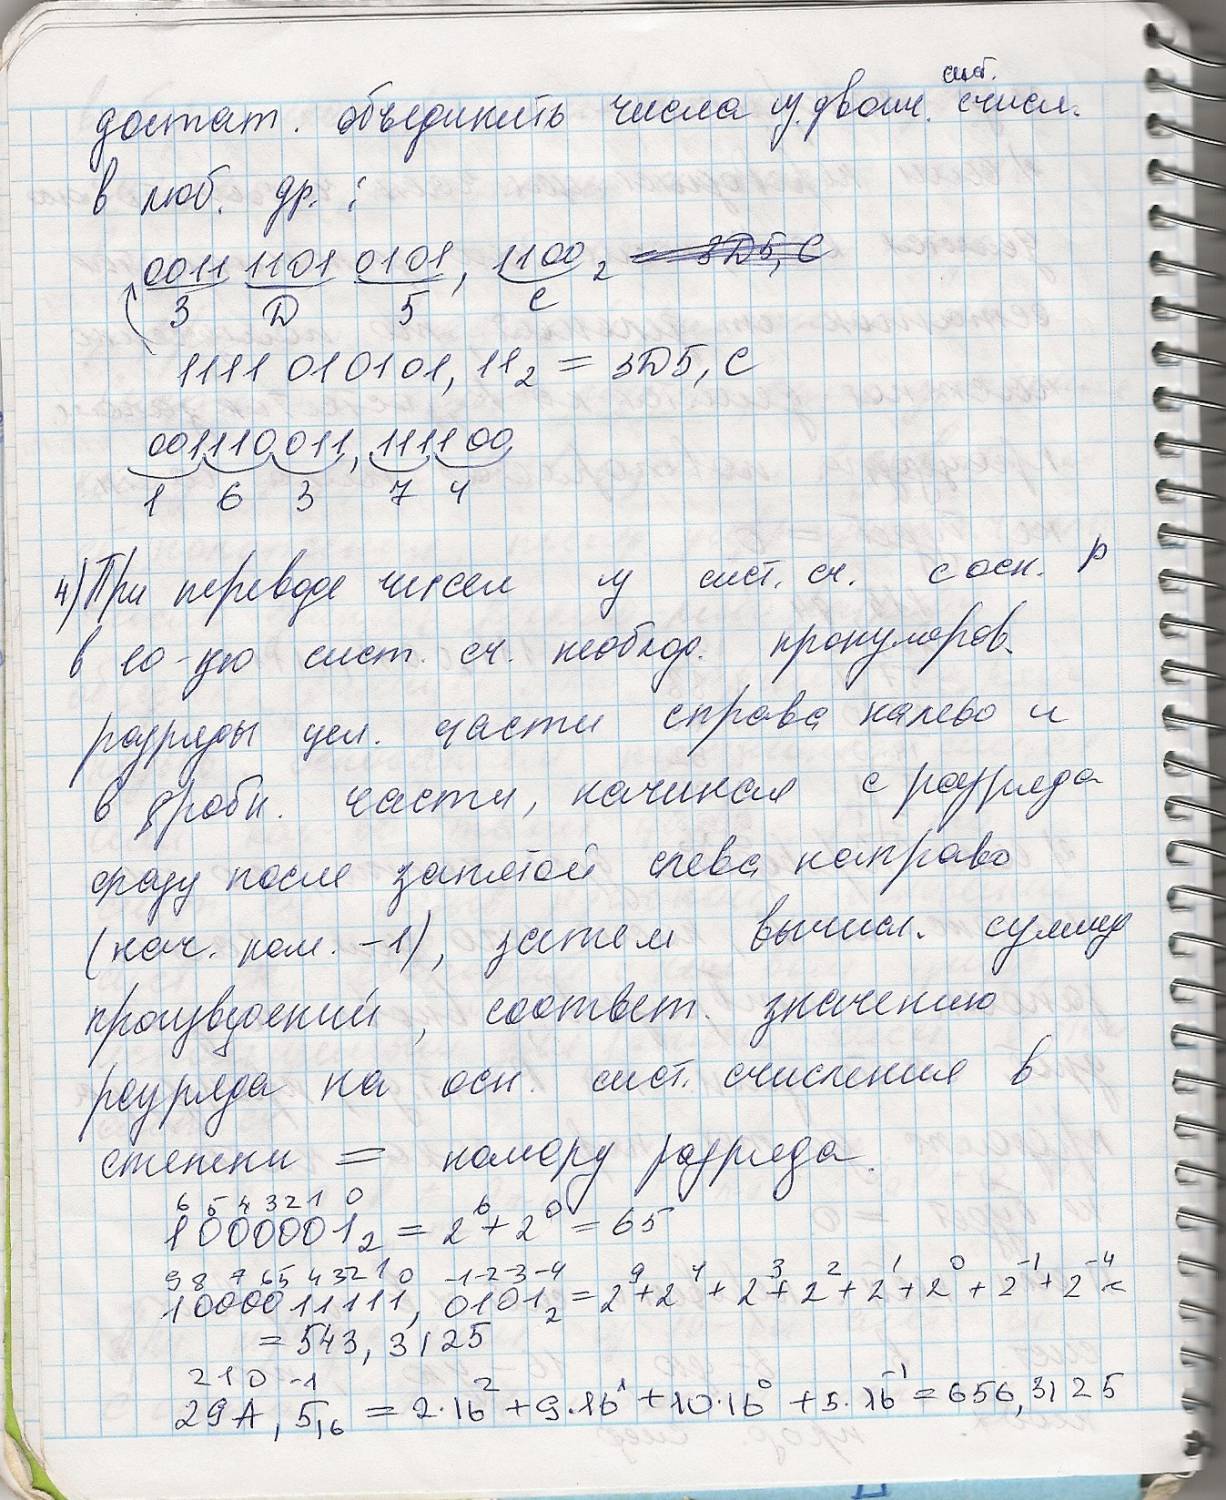 сист.
достат. объединить числа из двоич. счисл.
в люб. др. :
0011 1101 0101, 1100 2 = 3D5, C
3 D 5 C
1111 010101, 11 2 = 3D5, C
001110011, 111100
1 6 3 7 4
4) При переводе чисел из сист. сч. с осн. p
в 10-ую сист. сч. необход. пронумеров.
разряды цел. части справа налево и
в дробн. части, начиная с разряда
сразу после запятой слева направо
(нач. ном. -1), затем вычисл. сумму
произведений, соответ. значению
разряда на осн. сист. счисления в
степени = номеру разряда.
6 5 4 3 2 1 0
1000001₂ = 2⁶ + 2⁰ = 65
9 8 7 6 5 4 3 2 1 0 -1 -2 -3 -4
1000011111, 0101₂ = 2⁹ + 2⁴ + 2³ + 2² + 2¹ + 2⁰ + 2⁻¹ + 2⁻⁴ =
= 543, 3125
2 1 0 -1
29A, 5₁₆ = 2·16² + 9·16¹ + 10·16⁰ + 5·16⁻¹ = 656, 3125